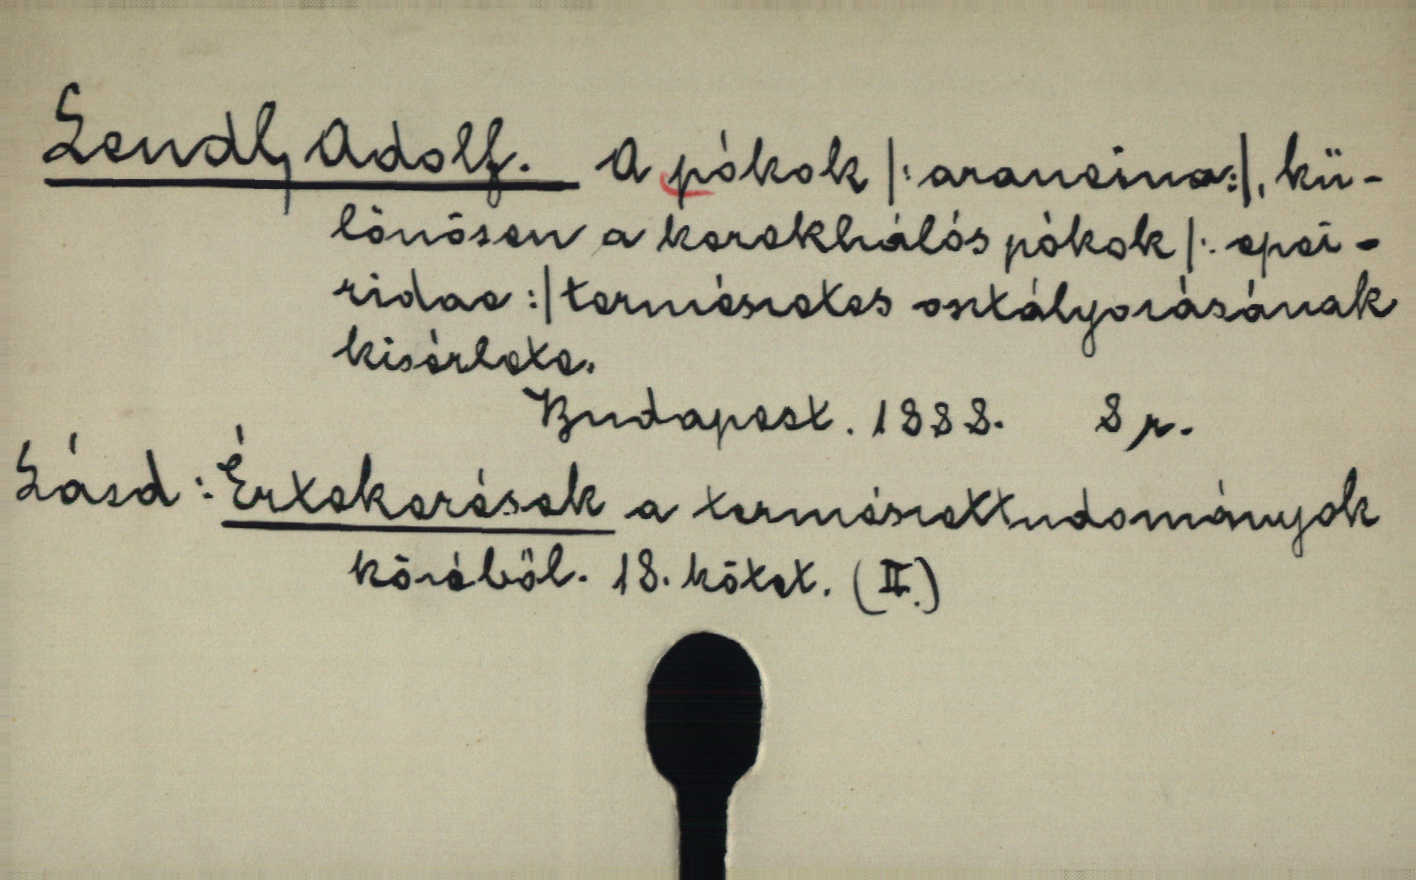 Lendl, Adolf. A pókok |: araneina :|, kü-
lönösen a kerekhálós pókok |: epei-
ridae :| természetes osztályozásának
kisérlete.
Budapest. 1888. 8 r.
Lásd: Értekezések a természettudományok
köréből. 18. kötet. (II.)